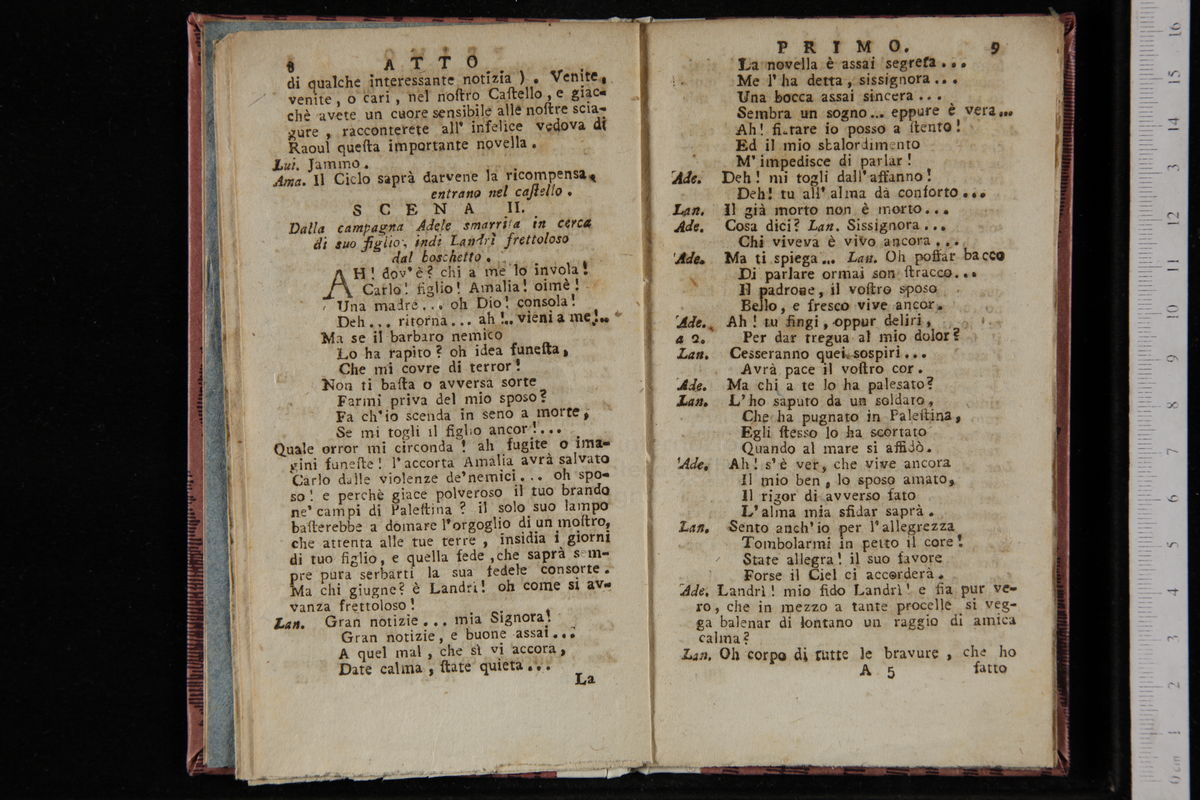 8 ATTO
di qualche interessante notizia ) . Venite,
venite, o cari, nel noſtro Caſtello, e giac-
chè avete un cuore sensibile alle noſtre scia-
gure, racconterete all' infelice vedova di
Raoul queſta importante novella.
Lui. Jammo.
Ama. Il Cielo saprà darvene la ricompensa,
entrano nel caſtello.
SCENA II.
Dalla campagna Adele smarrita in cerca
di suo figlio, indi Landrì frettoloso
dal boschetto.
AH! dov'è? chi a me lo invola!
Carlo! figlio! Amalia! oimè!
Una madre... oh Dio! consola!
Deh... ritorna... ah!.. vieni a me!..
Ma se il barbaro nemico
Lo ha rapito? oh idea funeſta,
Che mi covre di terror!
Non ti baſta o avversa sorte
Farmi priva del mio sposo?
Fa ch'io scenda in seno a morte,
Se mi togli il figlio ancor!...
Quale orror mi circonda! ah fugite o ima-
gini funeſte! l'accorta Amalia avrà salvato
Carlo dalle violenze de'nemici... oh spo-
so! e perchè giace polveroso il tuo brando
ne' campi di Paleſtina? il solo suo lampo
baſterebbe a domare l'orgoglio di un moſtro,
che attenta alle tue terre, insidia i giorni
di tuo figlio, e quella fede, che saprà sem-
pre pura serbarti la sua fedele consorte.
Ma chi giugne? è Landrì! oh come si av-
vanza frettoloso!
Lan. Gran notizie... mia Signora!
Gran notizie, e buone assai...
A quel mal, che sì vi accora,
Date calma, ſtate quieta...
La
PRIMO. 9
La novella è assai segreta...
Me l'ha detta, sissignora...
Una bocca assai sincera...
Sembra un sogno... eppure è vera...
Ah! fiatare io posso a ſtento!
Ed il mio stalordimento
M'impedisce di parlar!
Ade. Deh! mi togli dall'affanno!
Deh! tu all'alma da conforto...
Lan. Il già morto non è morto...
Ade. Cosa dici? Lan. Sissignora...
Chi viveva è vivo ancora...
Ade. Ma ti spiega... Lan. Oh poffar bacco
Di parlare ormai son ſtracco...
Il padrone, il voſtro sposo
Bello, e fresco vive ancor.
Ade. Ah! tu fingi, oppur deliri,
a 2. Per dar tregua al mio dolor?
Lan. Cesseranno quei sospiri...
Avrà pace il voſtro cor.
Ade. Ma chi a te lo ha palesato?
Lan. L'ho saputo da un soldato,
Che ha pugnato in Paleſtina,
Egli ſtesso lo ha scortato
Quando al mare si affidò.
Ade. Ah! s'è ver, che vive ancora
Il mio ben, lo sposo amato,
Il rigor di avverso fato
L'alma mia sfidar saprà.
Lan. Sento anch'io per l'allegrezza
Tombolarmi in petto il core!
State allegra! il suo favore
Forse il Ciel ci accorderà.
Ade. Landrì! mio fido Landrì! e fia pur ve-
ro, che in mezzo a tante procelle si veg-
ga balenar di lontano un raggio di amica
calma?
Lan. Oh corpo di tutte le bravure, che ho
A 5 fatto
0 cm 1 2 3 4 5 6 7 8 9 10 11 12 13 14 15 16